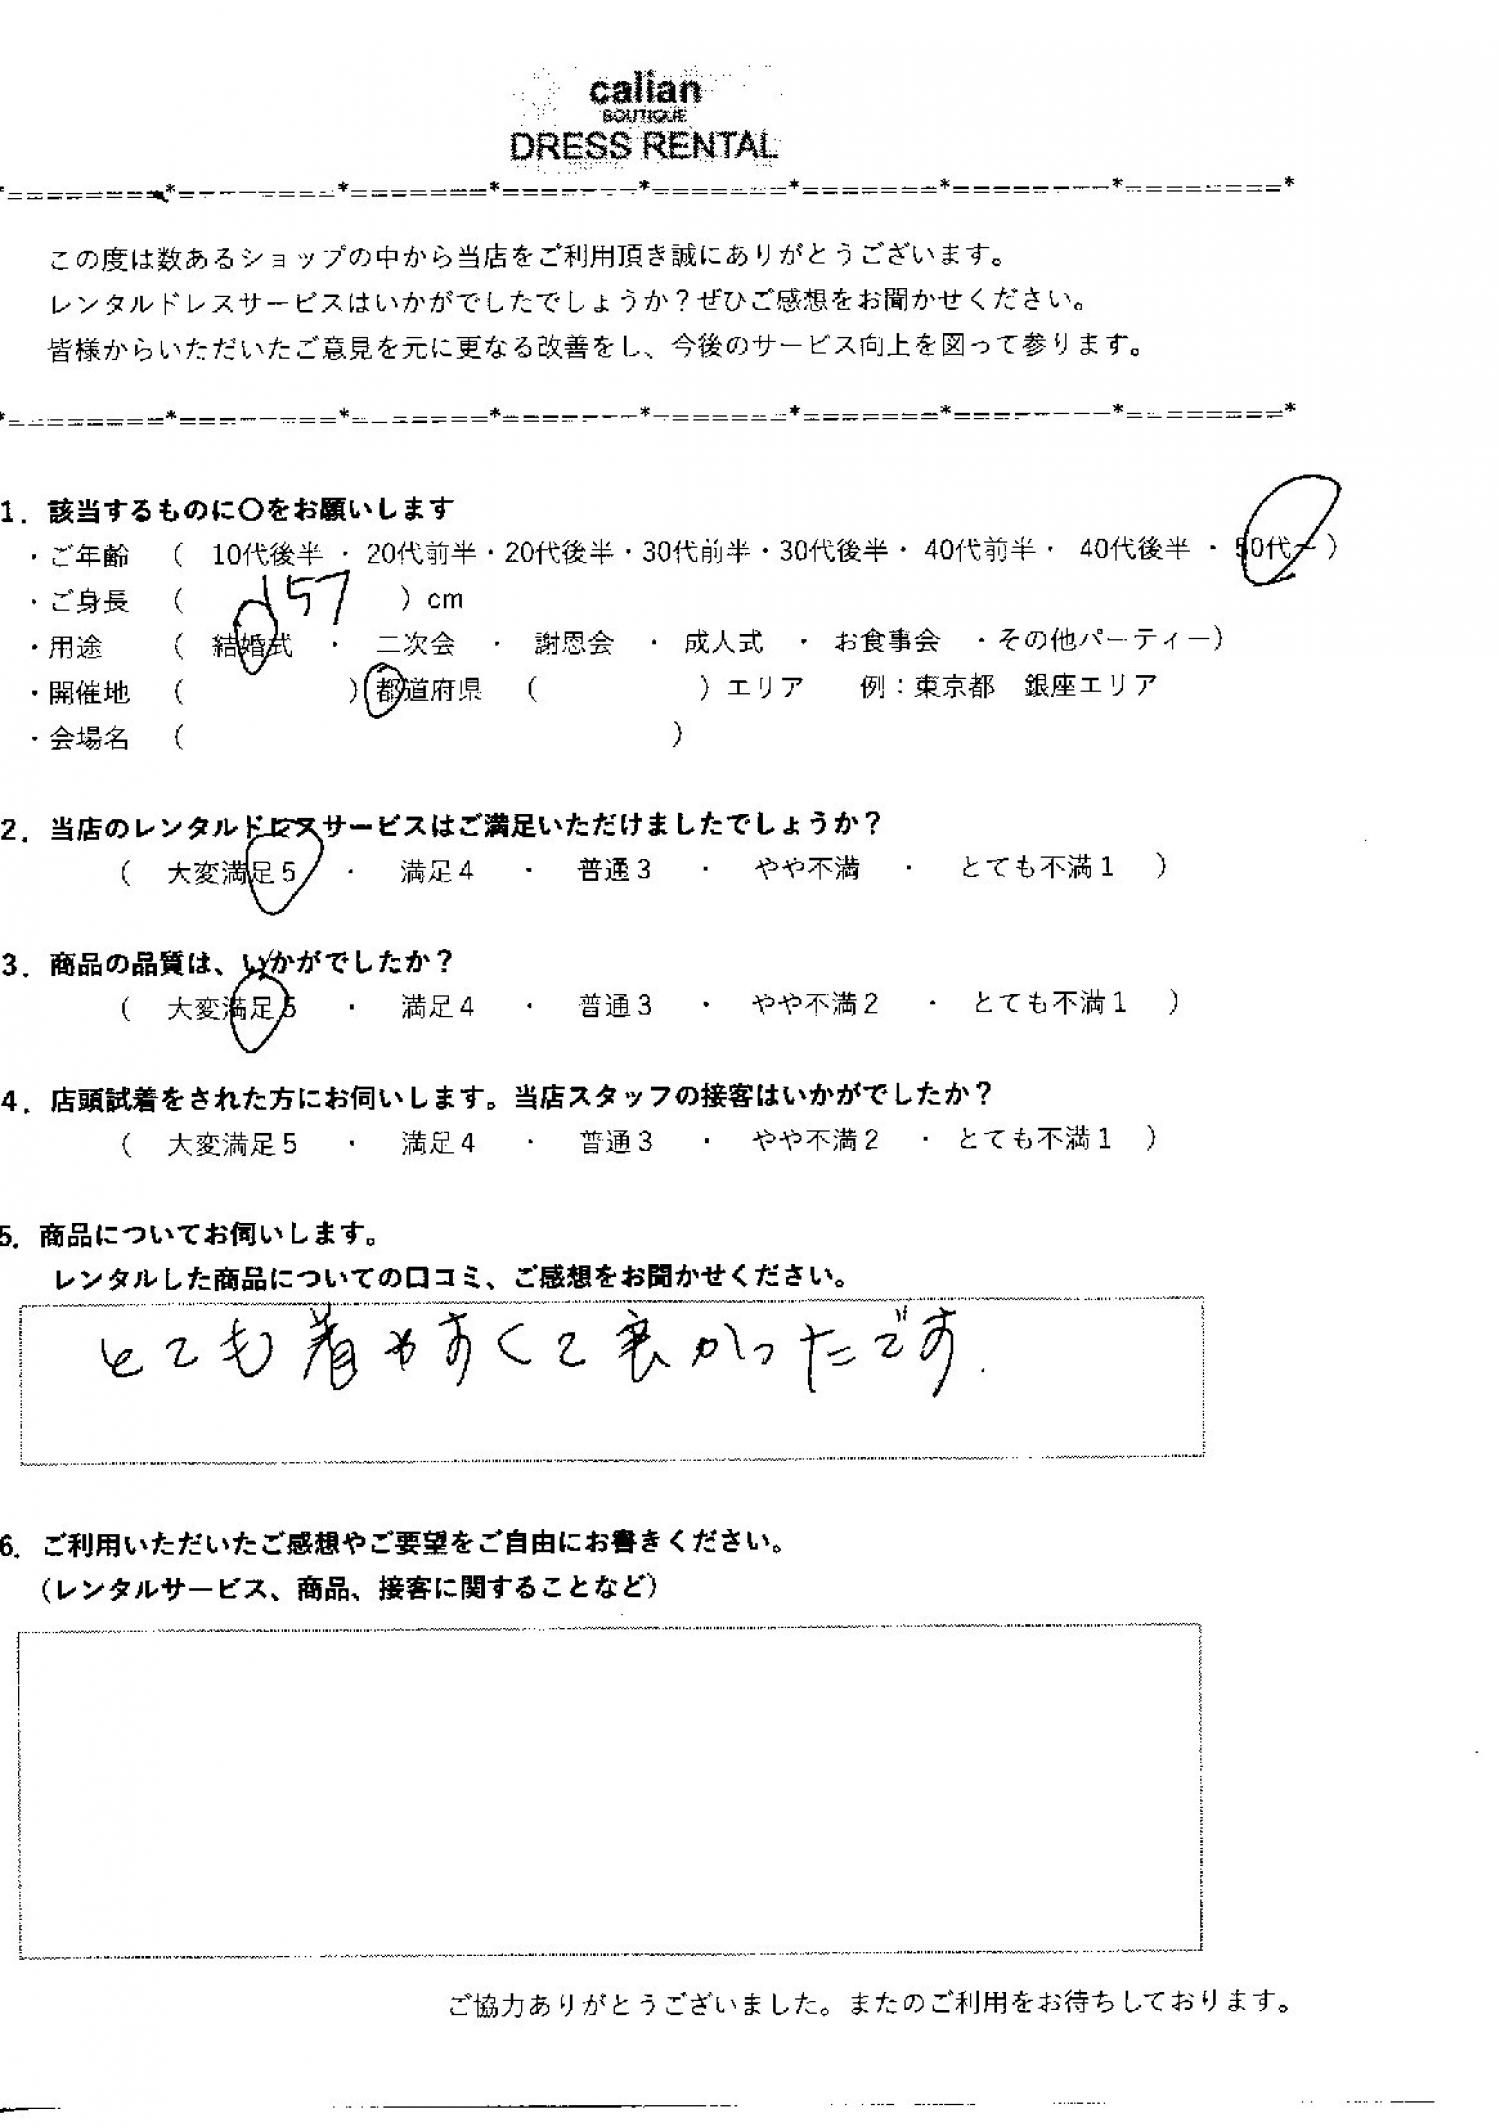 calian
BOUTIQUE
DRESS RENTAL
この度は数あるショップの中から当店をご利用頂き誠にありがとうございます。
レンタルドレスサービスはいかがでしたでしょうか？ぜひご感想をお聞かせください。
皆様からいただいたご意見を元に更なる改善をし、今後のサービス向上を図って参ります。
1. 該当するものに〇をお願いします
・ご年齢 （ 10代後半 ・ 20代前半・20代後半・30代前半・30代後半・ 40代前半・ 40代後半 ・ 50代～）
・ご身長 （ 157 ）cm
・用途 （ 結婚式 ・ 二次会 ・ 謝恩会 ・ 成人式 ・ お食事会 ・その他パーティー）
・開催地 （ ）(都道府県 （ ）エリア 例：東京都 銀座エリア
・会場名 （ ）
2. 当店のレンタルドレスサービスはご満足いただけましたでしょうか？
（ 大変満足5 ・ 満足4 ・ 普通3 ・ やや不満 ・ とても不満1 ）
3. 商品の品質は、いかがでしたか？
（ 大変満足5 ・ 満足4 ・ 普通3 ・ やや不満2 ・ とても不満1 ）
4. 店頭試着をされた方にお伺いします。当店スタッフの接客はいかがでしたか？
（ 大変満足5 ・ 満足4 ・ 普通3 ・ やや不満2 ・ とても不満1 ）
5. 商品についてお伺いします。
レンタルした商品についての口コミ、ご感想をお聞かせください。
とても着やすくて良かったです.
6. ご利用いただいたご感想やご要望をご自由にお書きください。
（レンタルサービス、商品、接客に関することなど）
ご協力ありがとうございました。またのご利用をお待ちしております。